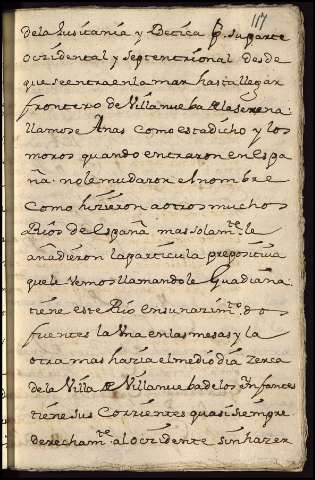 117
dela Lusitania y Betica p. su parte
occidental y septentrional desde
que se entra en la mar hasta llegar
frontero de Villanueba de la serena:
llamose Anas como esta dicho y los
moros quando entraron en Espa
ña. no le mudaron el nombre
como hizieron a otros muchos
Rios de España mas solamte. le
añadieron la particula prepositiva
que le vemos llamandole Guadiana.
tiene este Rio en su nacimto. dos
fuentes la Una en las mesas y la
otra mas hazia el medio dia zerca
de la Villa de Villanueba de los Ynfantes
tiene sus Corrientes quasi siempre
derechamte. al occidente sin hazer